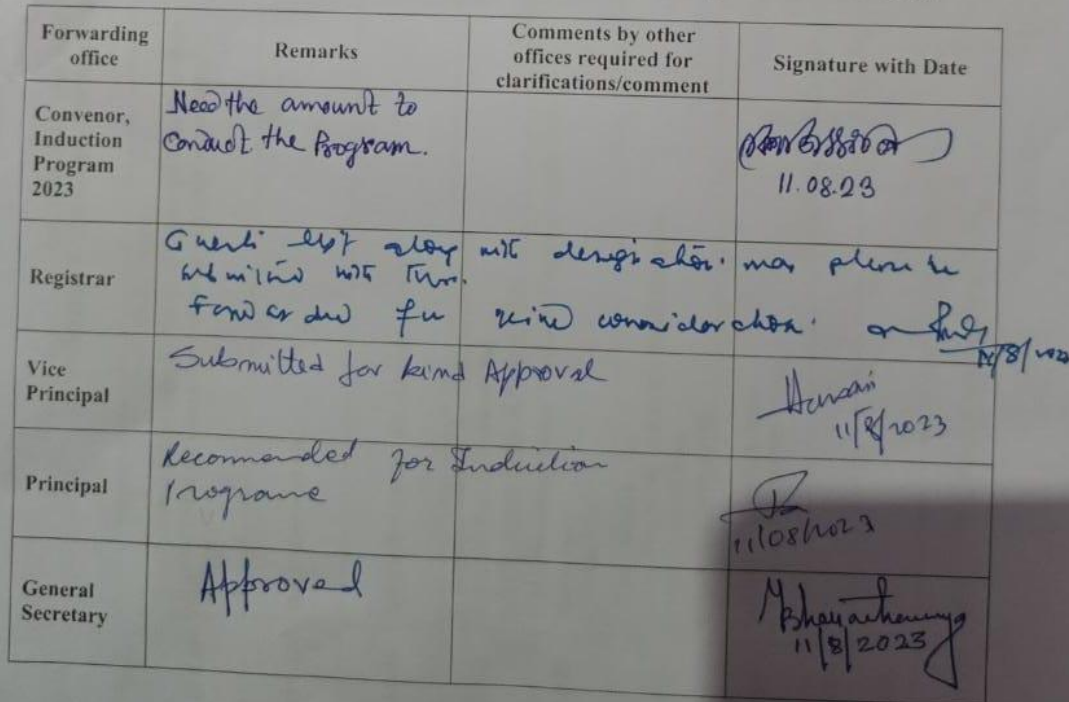 Forwarding office
Remarks
Comments by other offices required for clarifications/comment
Signature with Date
Convenor, Induction Program 2023
Need the amount to
Conduct the Program.
11.08.23
Registrar
list along with designation may please be
submitted with
Forwarded for kind consideration.
Vice Principal
Submitted for kind Approval
11/8/2023
Principal
Recommended for Induction
Programe
11/08/2023
General Secretary
Approved
11/8/2023